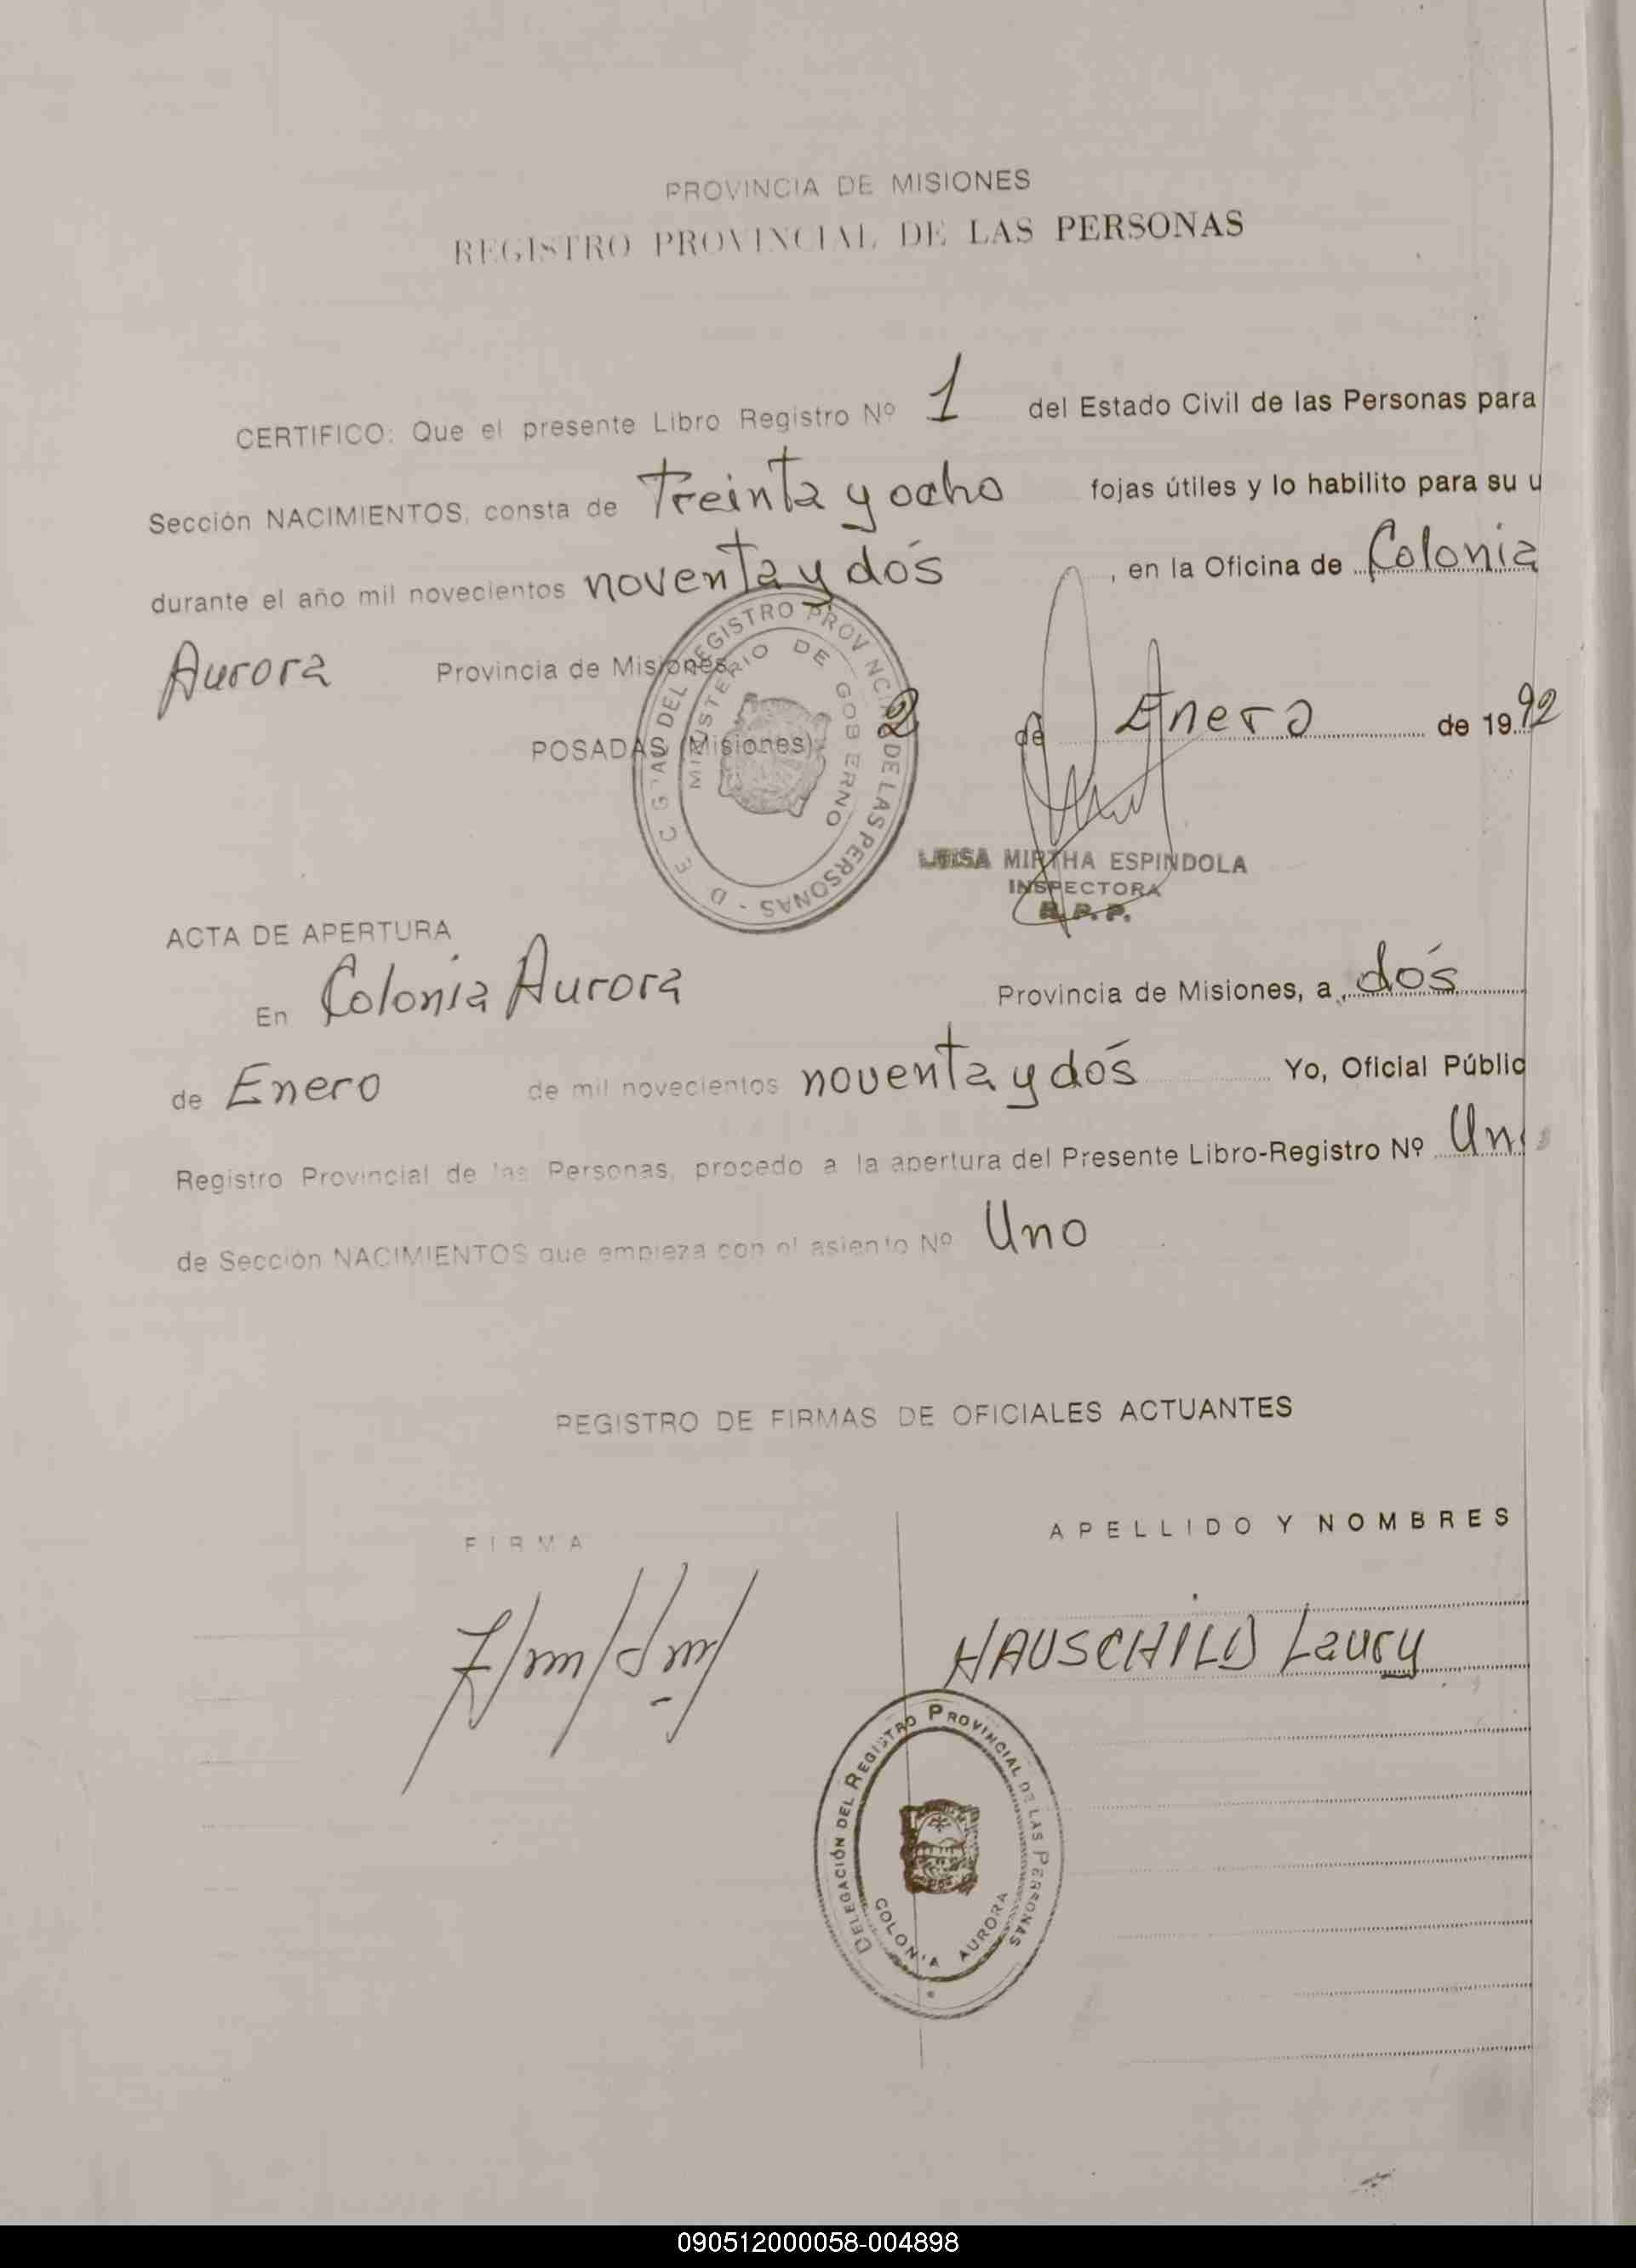 PROVINCIA DE MISIONES
REGISTRO PROVINCIAL DE LAS PERSONAS
CERTIFICO: Que el presente Libro Registro Nº 1 del Estado Civil de las Personas para
Sección NACIMIENTOS, consta de Treinta y ocho fojas útiles y lo habilito para su u
durante el año mil novecientos noventa y dós , en la Oficina de Colonia
Aurora Provincia de Misiones
POSADAS (Misiones) 2 de Enero de 19 92
REGISTRO PROV NCIAL DE LAS PERSONAS
MINISTERIO DE GOBIERNO
LUISA MIRTHA ESPINDOLA
INSPECTORA
R. P. P.
ACTA DE APERTURA
En Colonia Aurora Provincia de Misiones, a dós
de Enero de mil novecientos noventa y dós Yo, Oficial Públic
Registro Provincial de las Personas, procedo a la apertura del Presente Libro-Registro Nº Un
de Sección NACIMIENTOS que empieza con el asiento Nº Uno
REGISTRO DE FIRMAS DE OFICIALES ACTUANTES
FIRMA APELLIDO Y NOMBRES
HAUSCHILD Laury
DELEGACIÓN DEL REGISTRO PROVINCIAL DE LAS PERSONAS
COLONIA AURORA
090512000058-004898